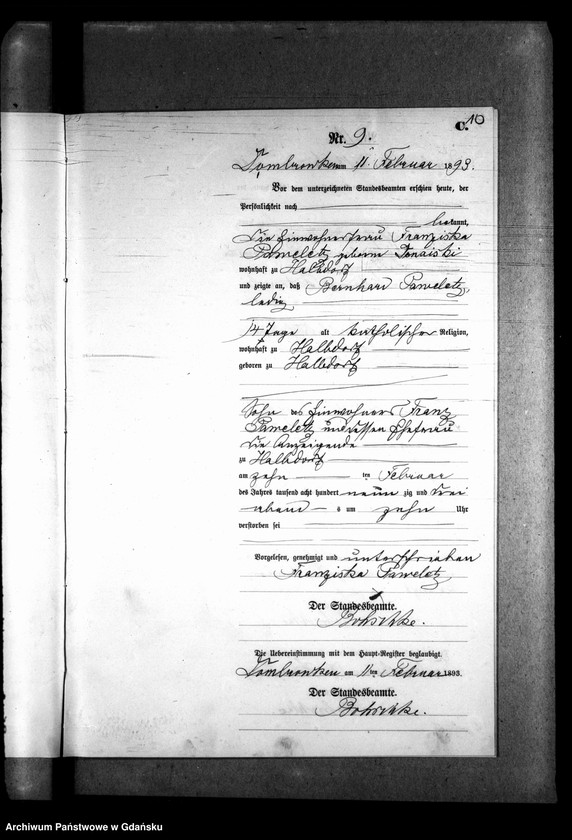 C. 10
Nr. 9.
Dombrowken am 11. Februar 1893.
Vor dem unterzeichneten Standesbeamten erschien heute, der
Persönlichkeit nach
bekannt,
die Einwohnerfrau Franziska
Paweletz geborne
wohnhaft zu Halbdorf
und zeigte an, daß Bernhard Paweletz,
ledig
14 Tage alt katholischer Religion,
wohnhaft zu Halbdorf
geboren zu Halbdorf
Sohn des Einwohners Franz
Paweletz und dessen Ehefrau
die Anzeigende
zu Halbdorf
am zehn ten Februar
des Jahres tausend acht hundert neun zig und drei
abend s um zehn Uhr
verstorben sei
Vorgelesen, genehmigt und unterschrieben
Franziska Paweletz
Der Standesbeamte.
Die Uebereinstimmung mit dem Haupt-Register beglaubigt.
Dombrowken am 11ten Februar 1893.
Der Standesbeamte.
Archiwum Państwowe w Gdańsku